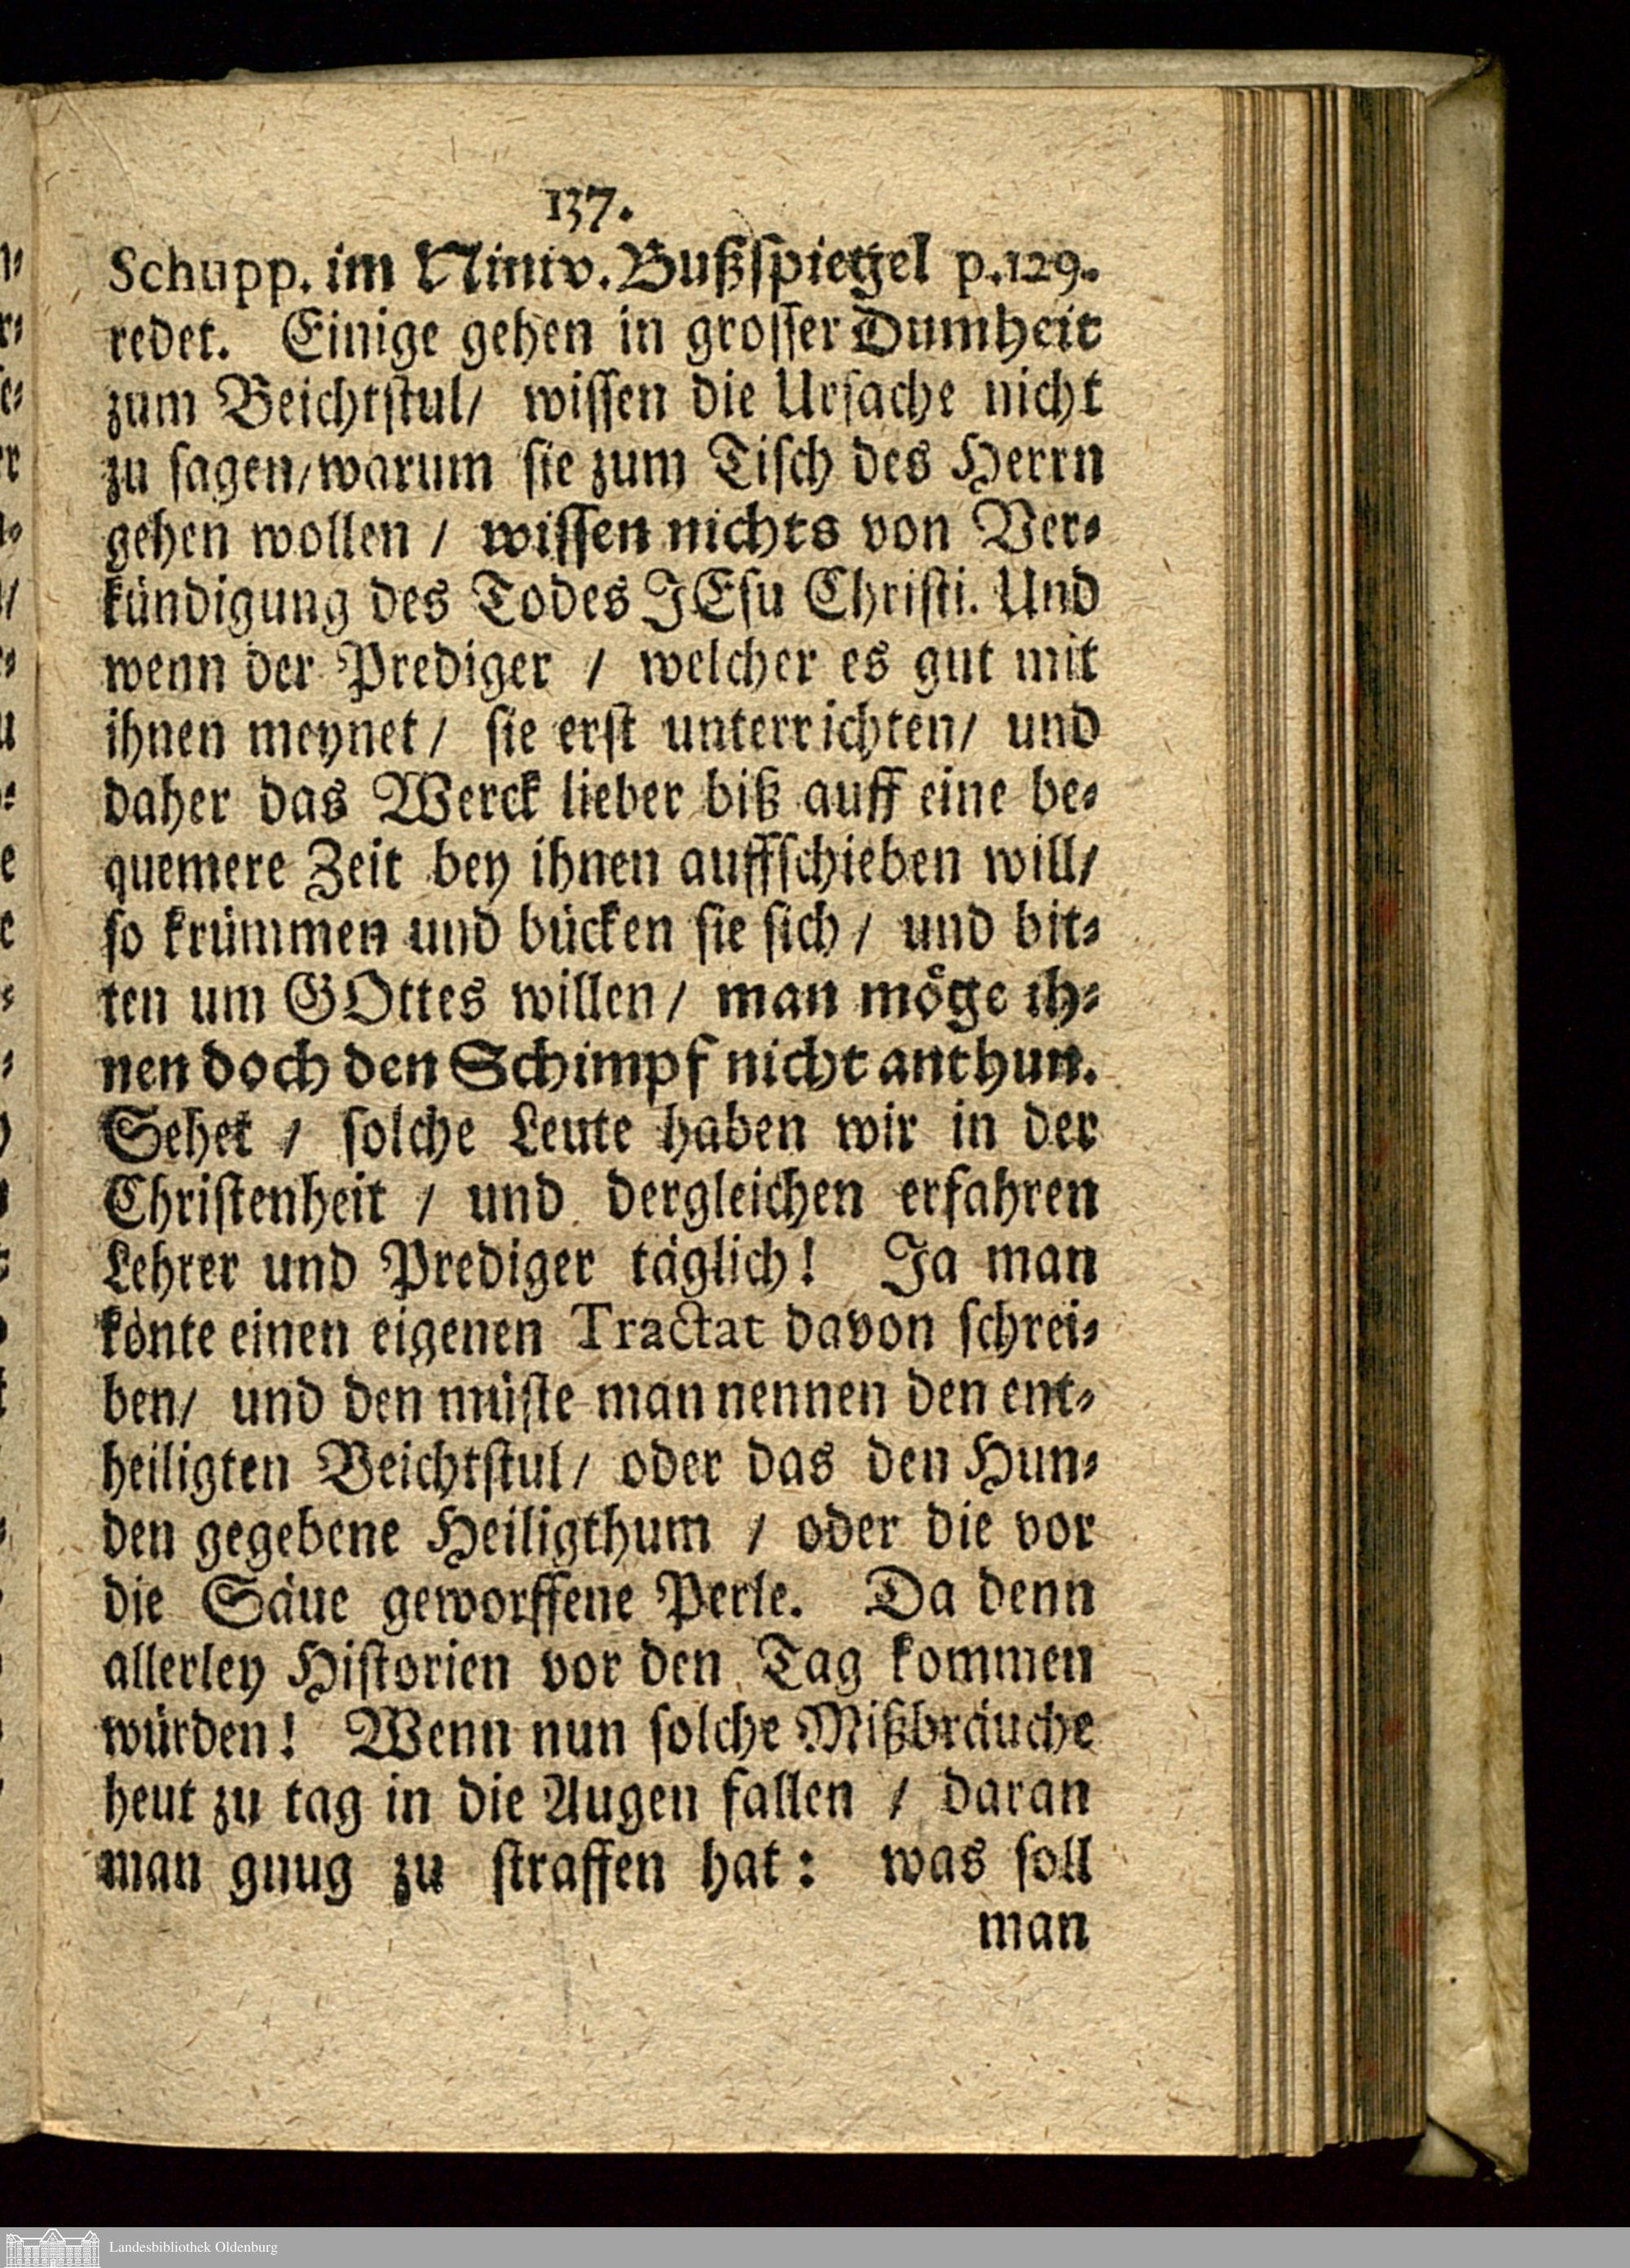 137.
Schupp. im Niniv. Bußspiegel p. 129.
redet. Einige gehen in grosser Dumheit
zum Beichtstul/ wissen die Ursache nicht
zu sagen/ warum sie zum Tisch des Herrn
gehen wollen / wissen nichts von Ver-
kündigung des Todes JEsu Christi. Und
wenn der Prediger / welcher es gut mit
ihnen meynet / sie erst unterrichten/ und
daher das Werck lieber biß auff eine be-
quemere Zeit bey ihnen auffschieben will/
so krümmen und bücken sie sich / und bit-
ten um GOttes willen / man möge ih-
nen doch den Schimpf nicht anthun.
Sehet / solche Leute haben wir in der
Christenheit / und dergleichen erfahren
Lehrer und Prediger täglich! Ja man
könte einen eigenen Tractat davon schrei-
ben/ und den müste man nennen den ent-
heiligten Beichtstul/ oder das den Hun-
den gegebene Heiligthum / oder die vor
die Säue geworffene Perle. Da denn
allerley Historien vor den Tag kommen
würden! Wenn nun solche Mißbräuche
heut zu tag in die Augen fallen / daran
man gnug zu straffen hat: was soll
man
Landesbibliothek Oldenburg